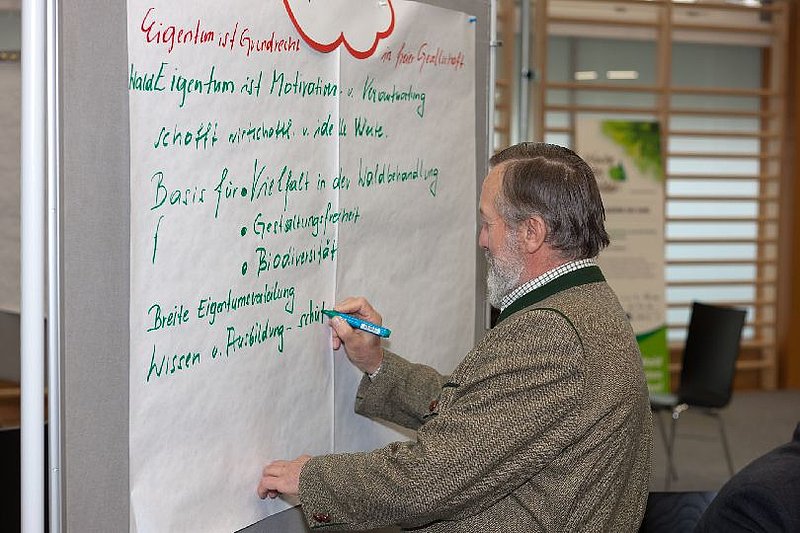 Eigentum ist Grundrecht in freier Gesellschaft
WaldEigentum ist Motivation u. Verantwortung
schafft wirtschaftl. u. idelle Werte.
Basis für • Vielfalt in der Waldbehandlung
• Gestaltungsfreiheit
• Biodiversität
Breite Eigentumsverteilung
Wissen u. Ausbildung - schüt